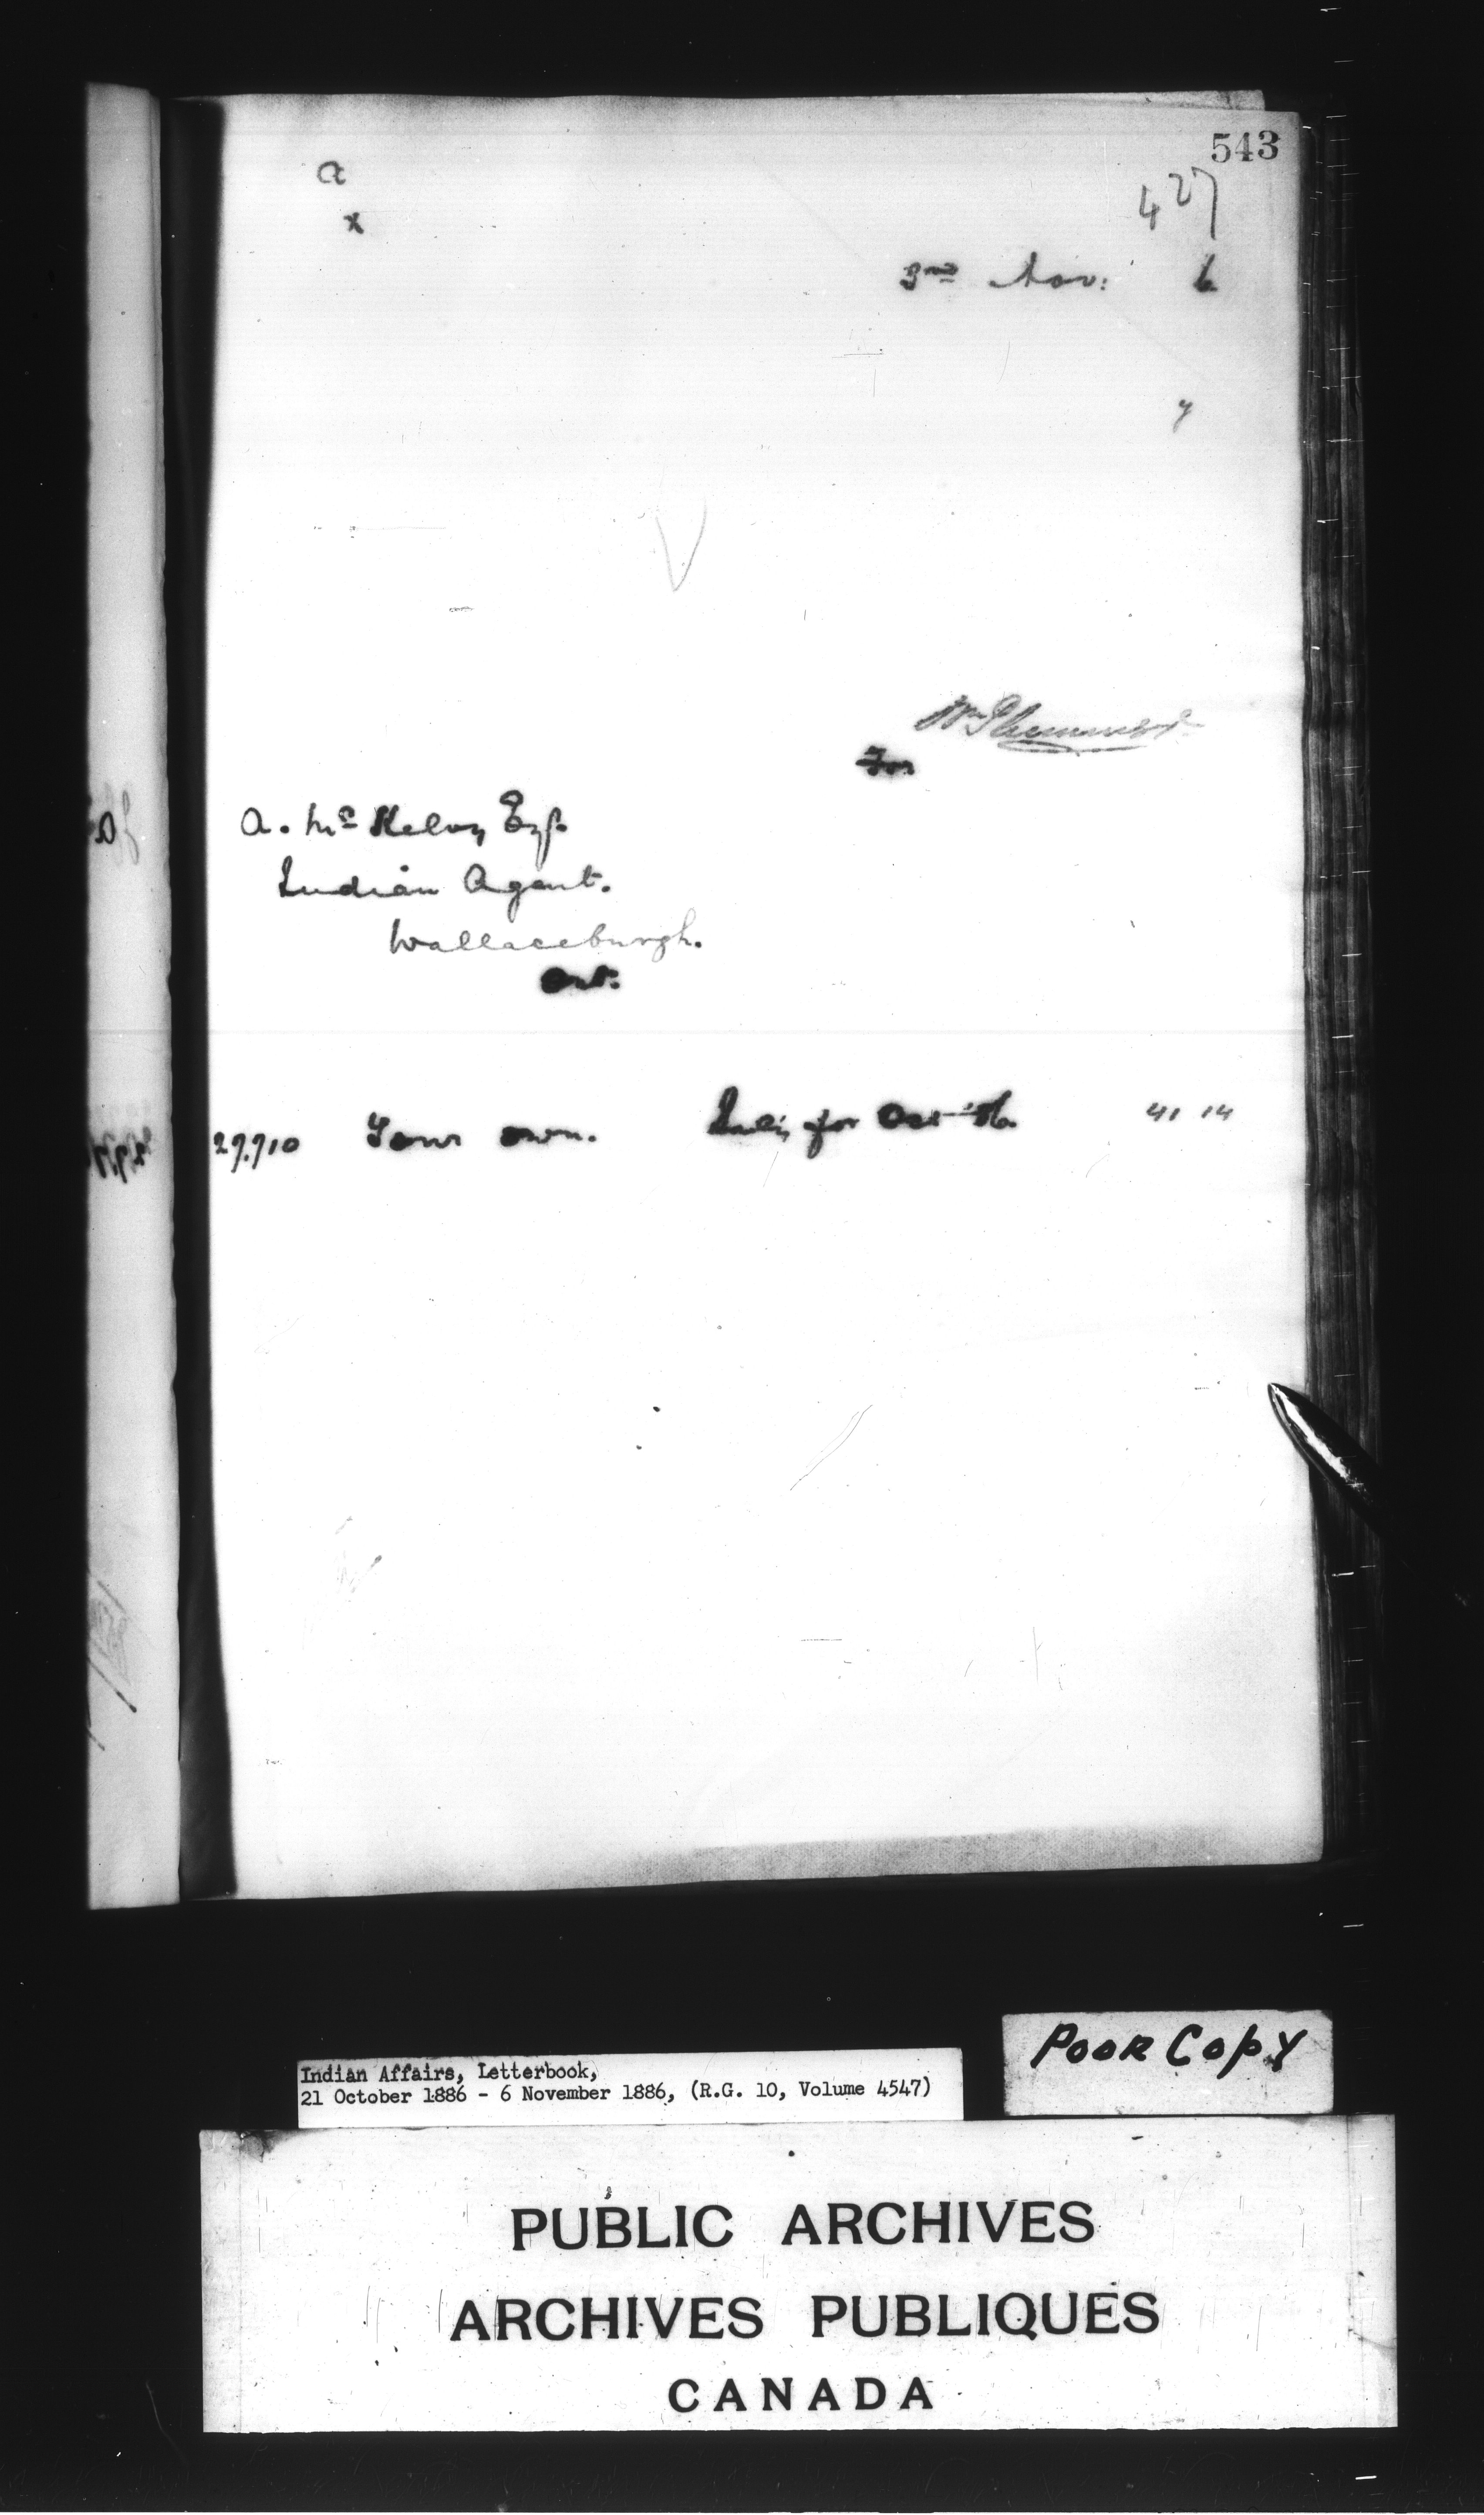 543
a
427
x
3rd Nov: 6
y
Wm Plummer
For
A. McKelvey Esq.
Indian Agent.
Wallaceburgh.
Ont.
27.710 Your own. for Oct '86. 41 14
Poor Copy
Indian Affairs, Letterbook,
21 October 1886 - 6 November 1886, (R.G. 10, Volume 4547)
PUBLIC ARCHIVES
ARCHIVES PUBLIQUES
CANADA